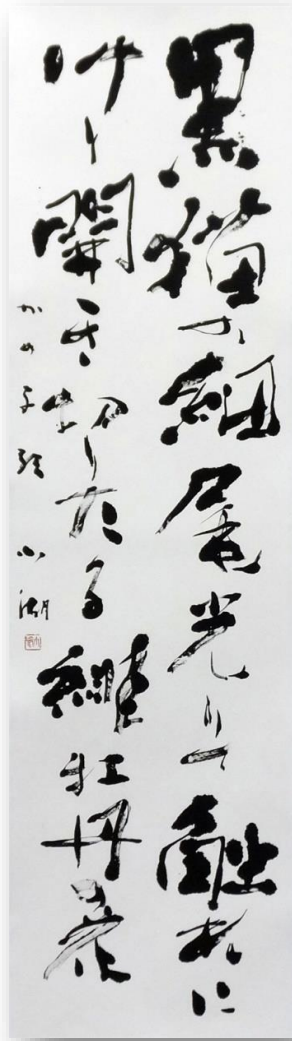 黒猫か細尾光りて觸れに
けり開き切りたる緋牡丹の花
かの子歌 小湖